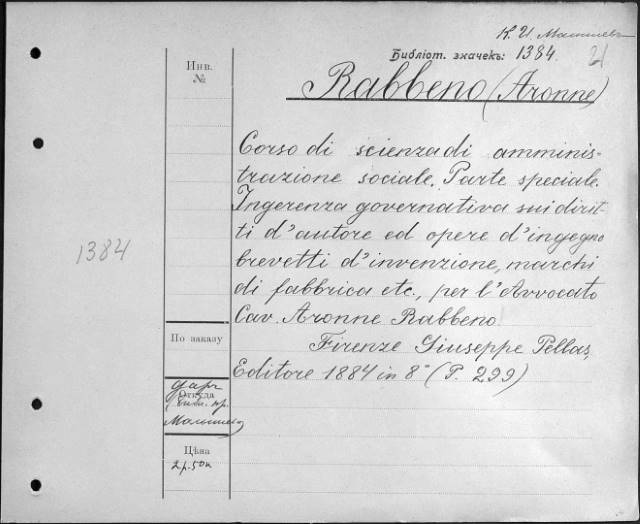 К. И. Малышев
Библіот. значекъ: 1384.
Инв.
№
Rabbeno (Aronne)
Corso di scienza di amminis-
trazione sociale. Parte speciale.
Ingerenza governativa sui dirit-
ti d'autore ed opere d'ingegno
brevetti d'invenzione, marchi
1384
di fabbrica etc., per l'Avvocato
Cav. Aronne Rabbeno
По заказу
Firenze Giuseppe Pellas,
Editore 1884 in 8° (P. 299)
даръ
Откуда
Малышева
Цѣна
2 р. 50 к